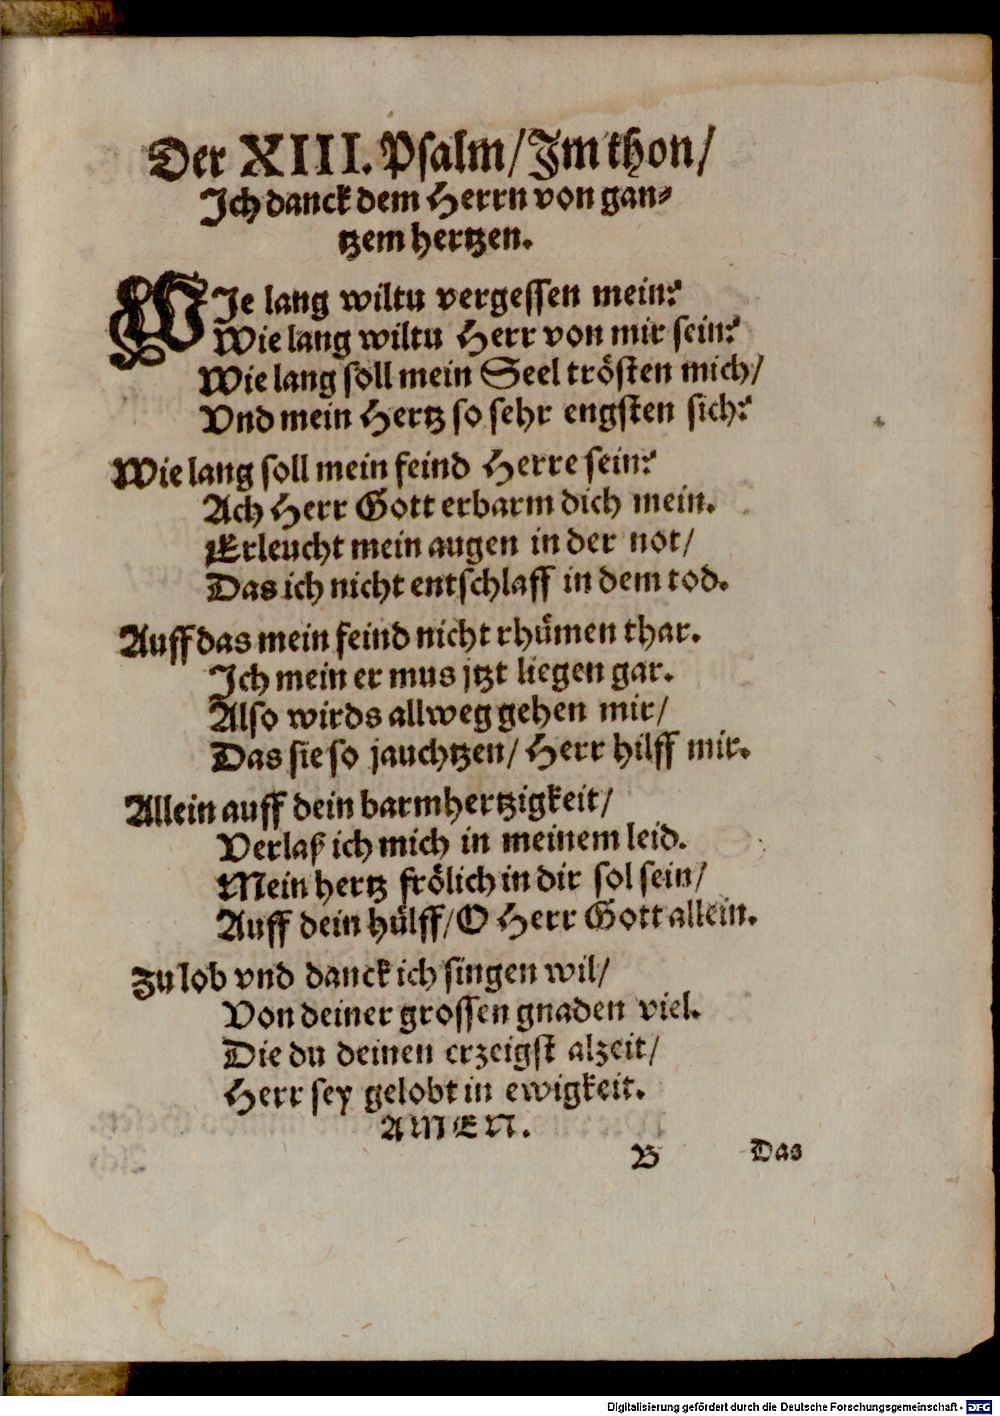 Der XIII. Psalm/ Im thon/
Ich danck dem Herrn von gan⸗
tzem hertzen.
WIe lang wiltu vergessen mein?
Wie lang wiltu Herr von mir sein?
Wie lang soll mein Seel trösten mich/
Vnd mein Hertz so sehr engsten sich?
Wie lang soll mein feind Herre sein?
Ach Herr Gott erbarm dich mein.
Erleucht mein augen in der not/
Das ich nicht entschlaff in dem tod.
Auff das mein feind nicht rhümen thar.
Ich mein er mus jtzt liegen gar.
Also wirds allweg gehen mir/
Das sie so jauchtzen/ Herr hilff mir.
Allein auff dein barmhertzigkeit/
Verlaß ich mich in meinem leid.
Mein hertz frölich in dir sol sein/
Auff dein hülff/ O Herr Gott allein.
Zu lob vnd danck ich singen wil/
Von deiner grossen gnaden viel.
Die du deinen erzeigst alzeit/
Herr sey gelobt in ewigkeit.
AMEN.
B Das
Digitalisierung gefördert durch die Deutsche Forschungsgemeinschaft - DFG